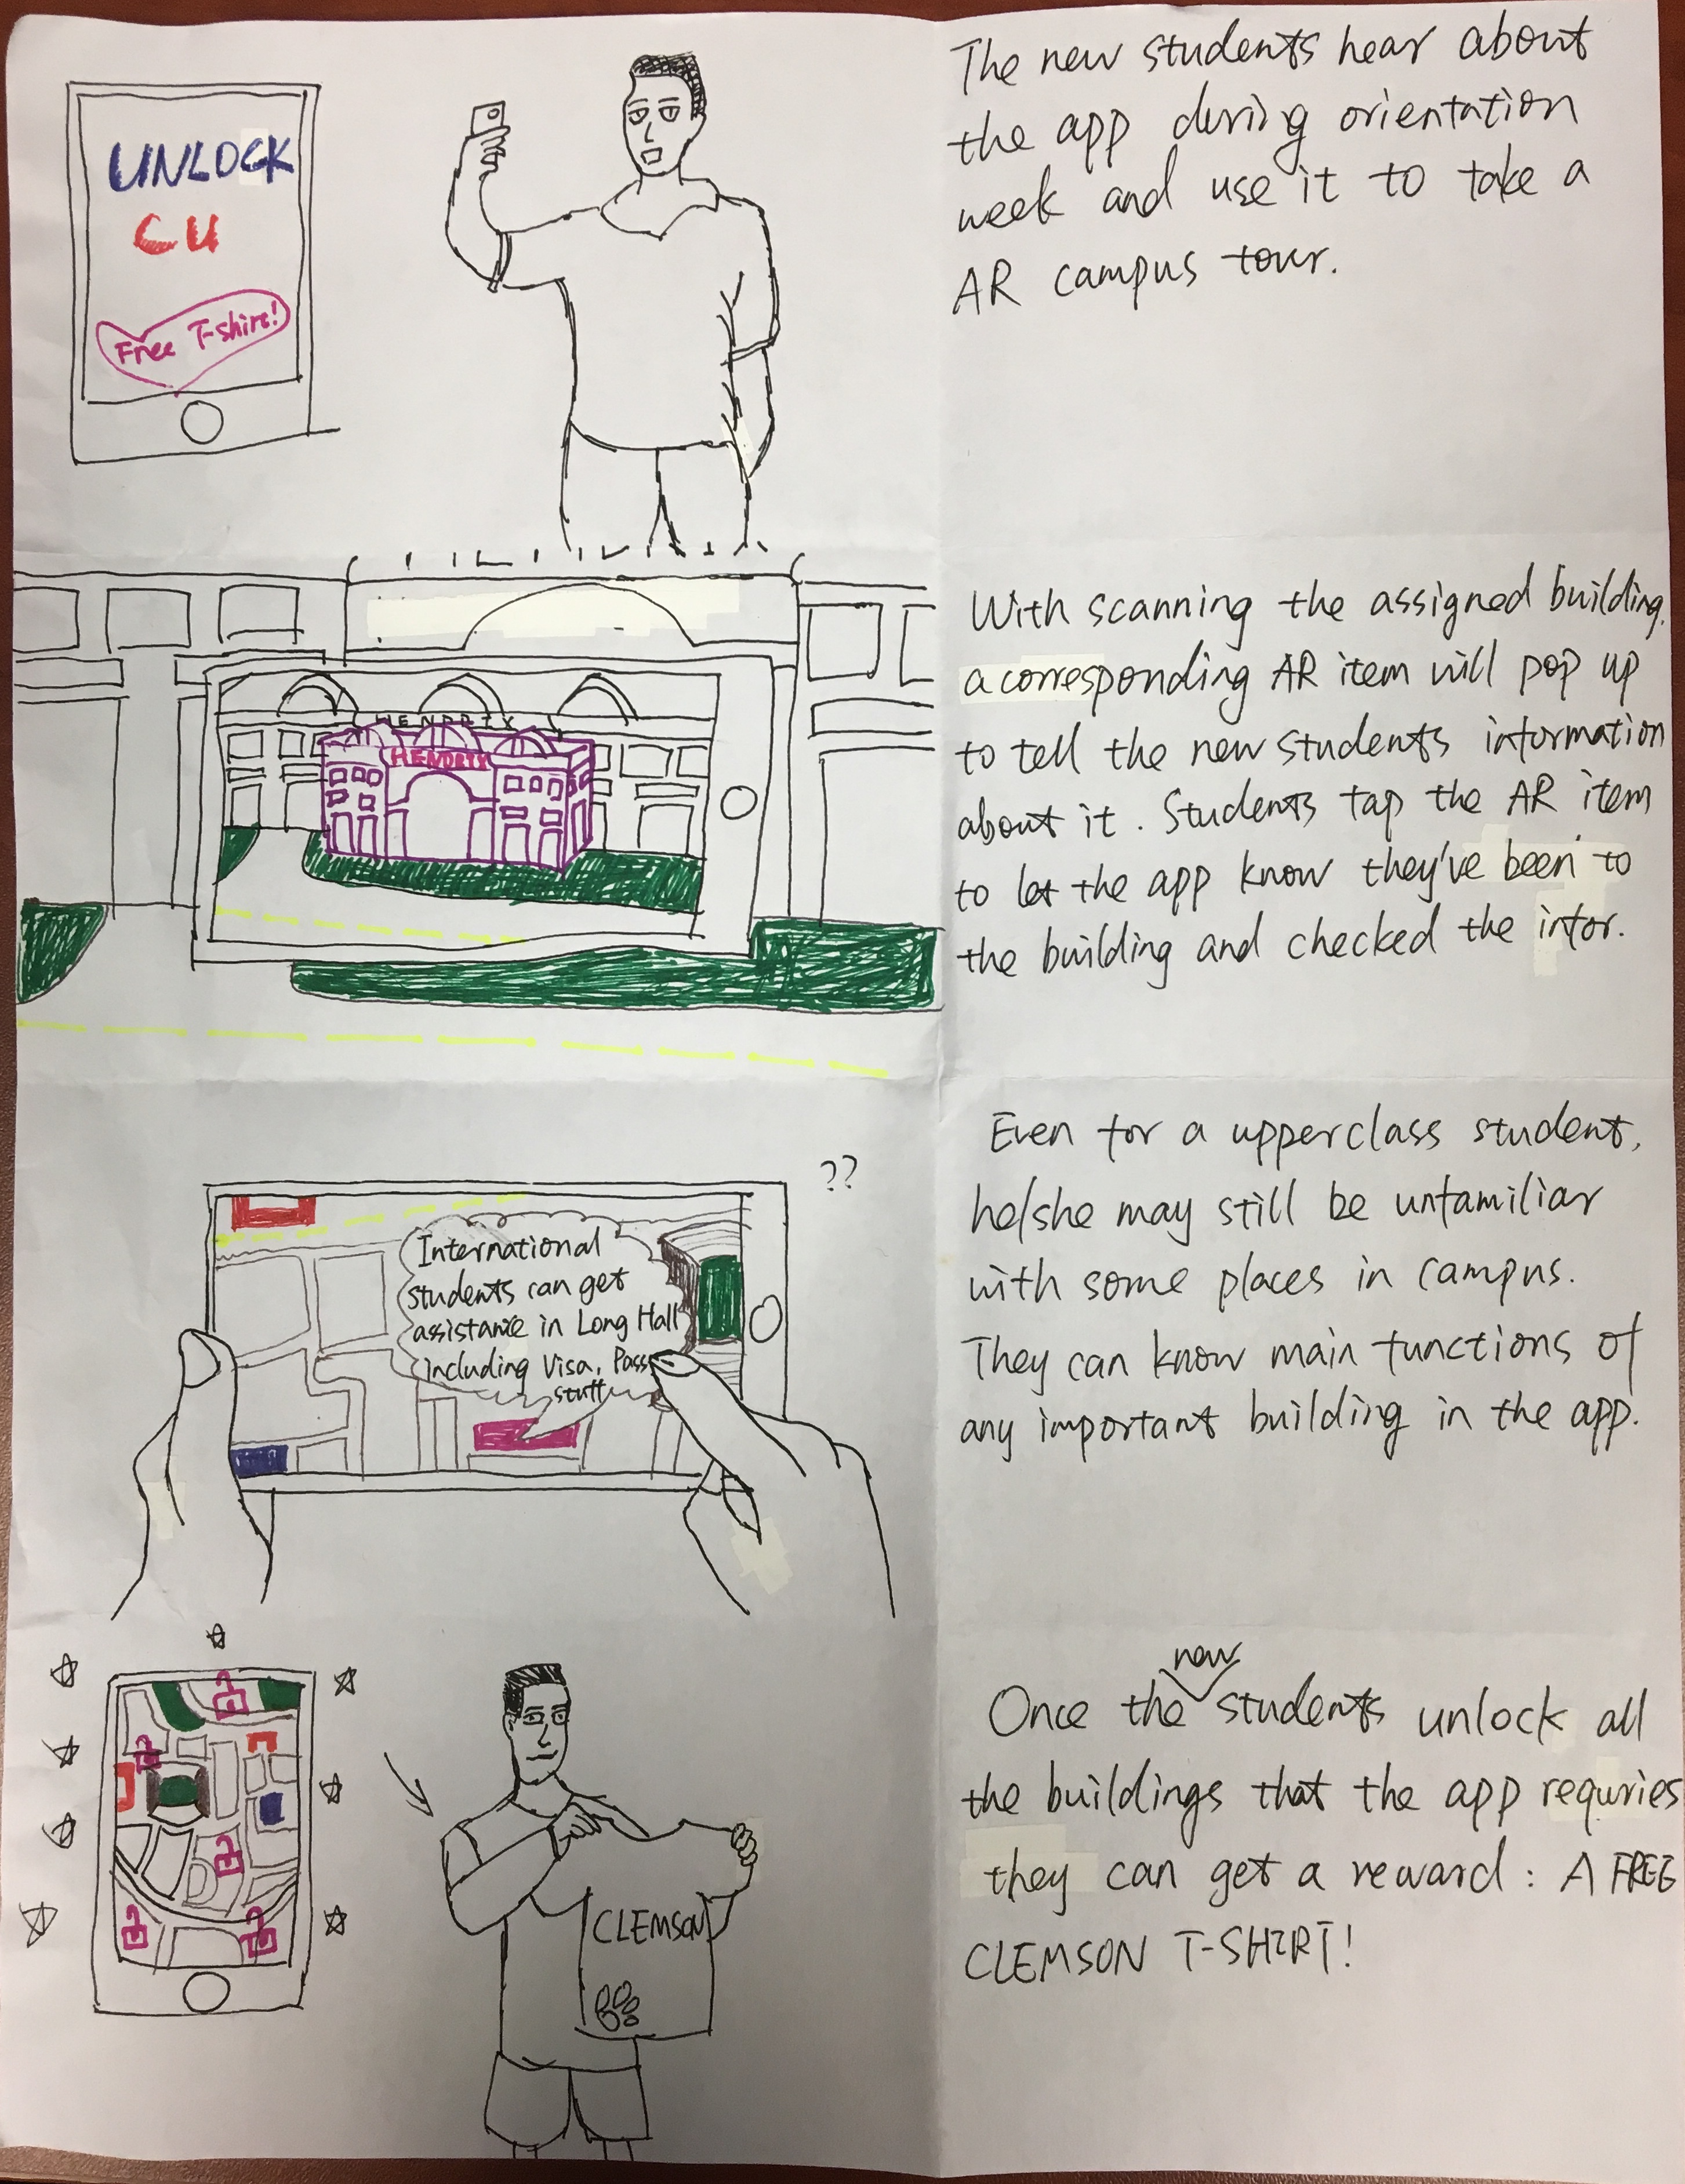 UNLOCK
CU
Free T-shirt!
The new students hear about
the app during orientation
week and use it to take a
AR campus tour.
HENDRIX
HENDRIX
With scanning the assigned building,
a corresponding AR item will pop up
to tell the new students information
about it. Students tap the AR item
to let the app know they've been to
the building and checked the infor.
??
International
students can get
assistance in Long Hall
including Visa, Pass
stuff
Even for a upperclass student,
he/she may still be unfamiliar
with some places in campus.
They can know main functions of
any important building in the app.
CLEMSON
new
Once the students unlock all
the buildings that the app requries
they can get a reward: A FREE
CLEMSON T-SHIRT!